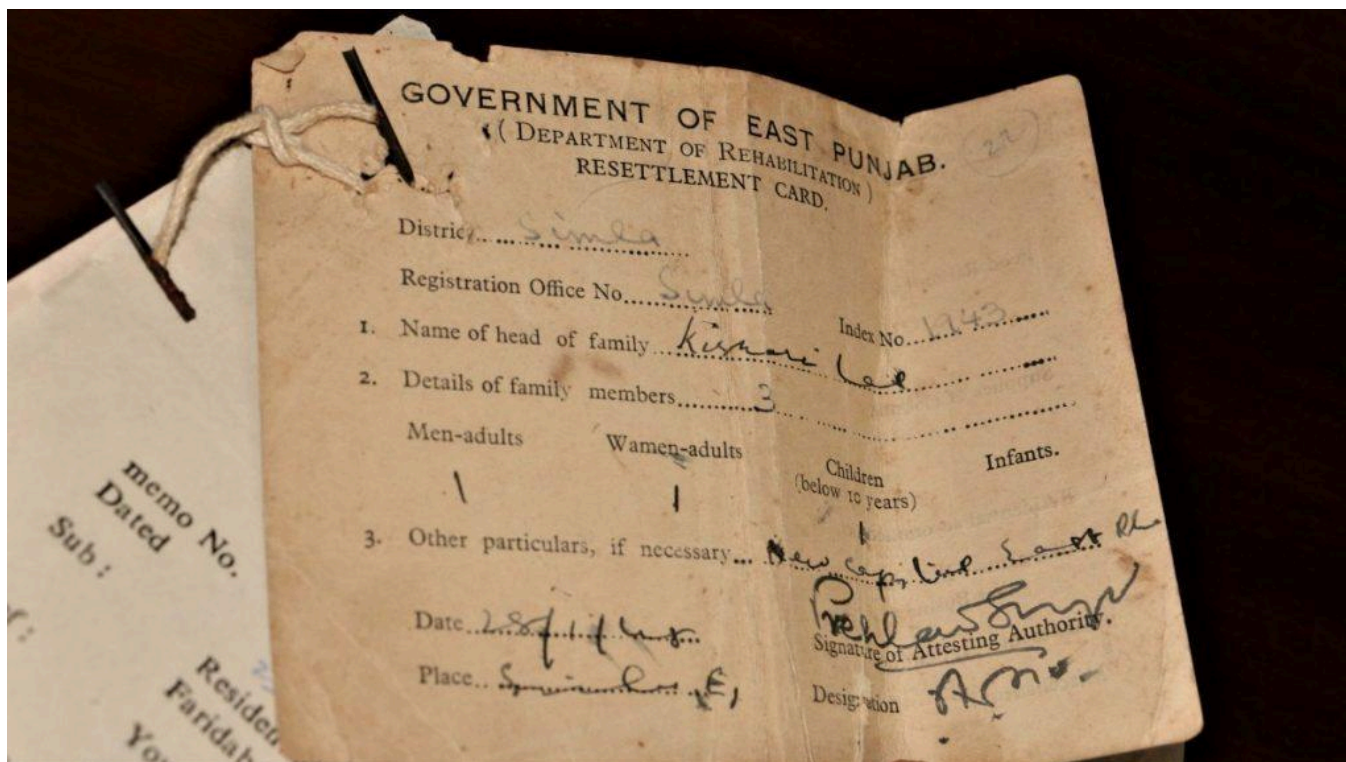 GOVERNMENT OF EAST PUNJAB.
(DEPARTMENT OF REHABILITATION)
RESETTLEMENT CARD.
22
District Simla
Registration Office No. Simla
Index No. 1943
1. Name of head of family Kishori Lal
2. Details of family members 3
Men-adults Wamen-adults Children (below 10 years) Infants.
1 1 1
3. Other particulars, if necessary New capital East
Date 28/1/48
Place
Signature of Attesting Authority.
Designation
memo No.
Dated
Sub :